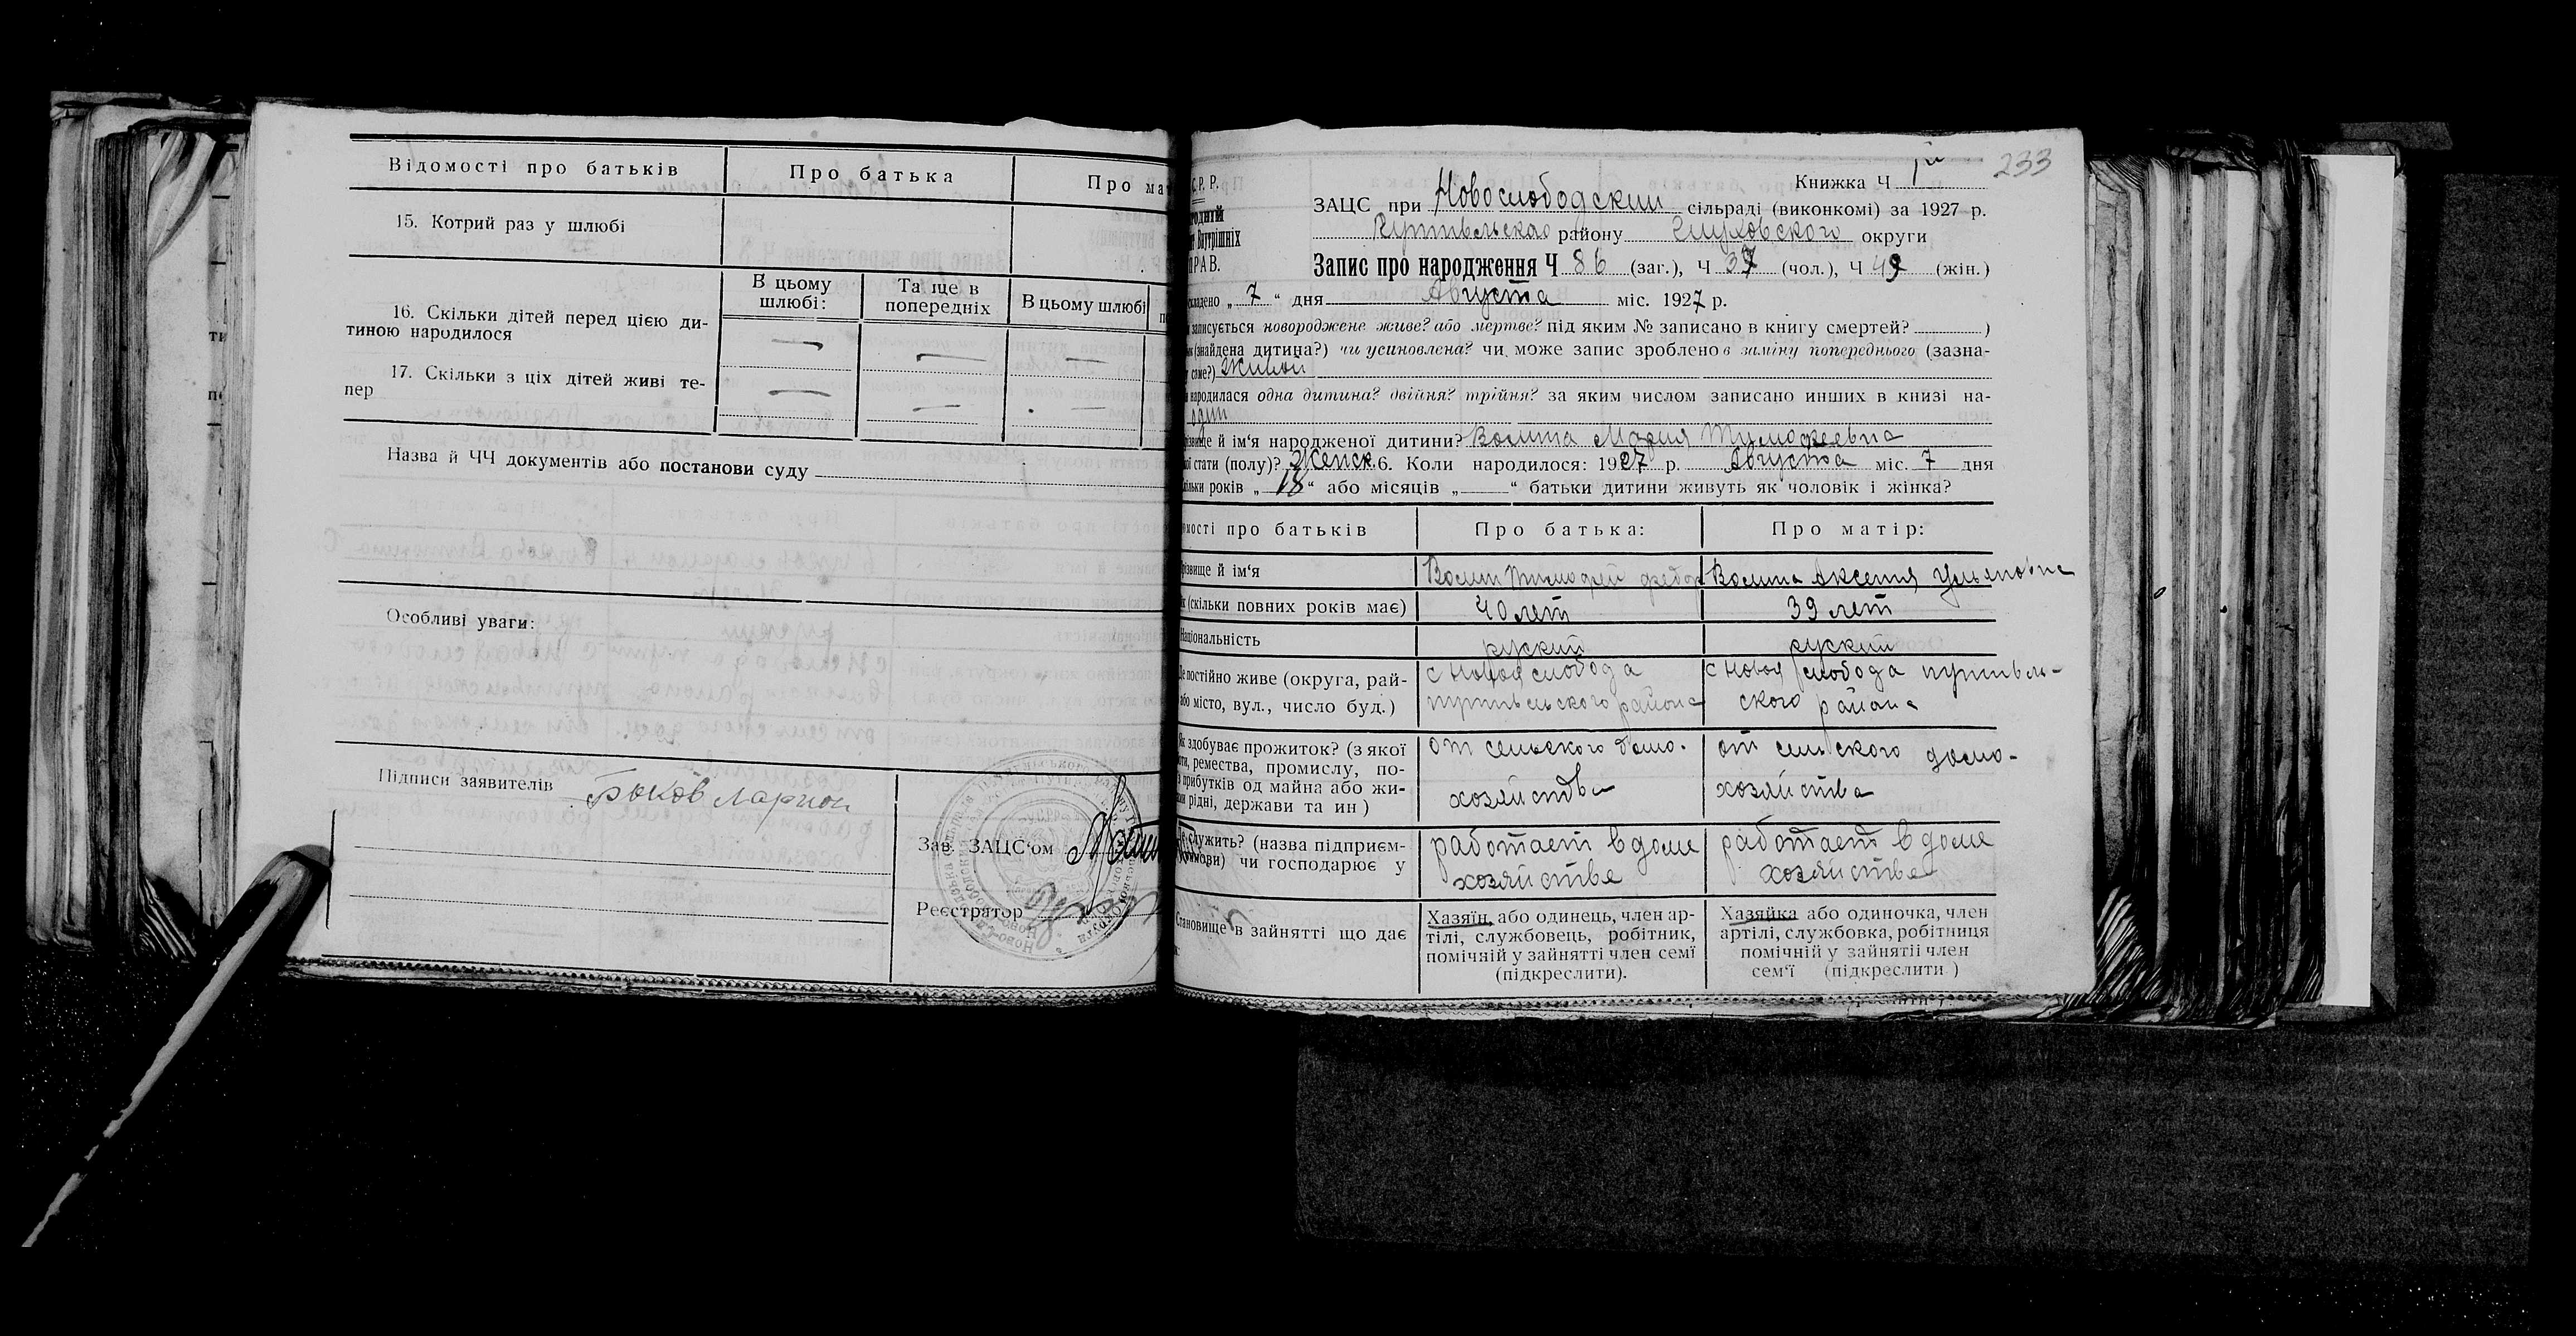 Відомості про батьків
Про батька
Про ма
15. Котрий раз у шлюбі
В цьому
шлюбі:
Та ще в
попередніх
В цьому шлюбі
16. Скільки дітей перед цією ди-
тиною народилося
17. Скільки з ціх дітей живі те-
пер
Назва й ЧЧ документів або постанови суду
Особливі уваги:
Підписи заявителів Быков Ларион
Зав. ЗАЦС'ом
Реєстратор
233
С.Р.Р.
Книжка Ч 1й
ЗАЦС при Новослободский сільраді (виконкомі) за 1927 р.
Внутрішніх
Путивльскаго району Глуховского округи
ПРАВ.
Запис про народження Ч 86 (заг.), Ч 37 (чол.), Ч 49 (жін.)
кладено „ 7 " дня Августа міс. 1927 р.
записується новороджене живе? або мертве? під яким № записано в книгу смертей? )
(знайдена дитина?) чи усиновлена? чи може запис зроблено в заміну попереднього (зазна-
саме?) Живой
народилася одна дитина? двійня? трійня? за яким числом записано инших в книзі на-
один
звище й ім'я народженої дитини? Мария Тимофеевна
стати (полу)? Женск. 6. Коли народилося: 1927 р. Августа міс. 7 дня
ільки років „ 18 " або місяців „ — " батьки дитини живуть як чоловік і жінка?
мості про батьків
Про батька:
Про матір:
різвище й ім'я
Тимофей Федор
Аксения Ульяновна
(скільки повних років має)
40 лет
39 лет
Національність
руский
руский
Де постійно живе (округа, рай-
або місто, вул., число буд.)
с Новоя слобода
путивльского района
с Новоя слобода путивль-
ского района
Як здобуває прожиток? (з якої
ремества, промислу, по-
прибутків од майна або жи-
рідні, держави та ин)
от сельского домо-
хозяйства
от сельского домо-
хозяйства
Де служить? (назва підприєм-
чи господарює у
работает в доме
хозяйстве
работает в доме
хозяйстве
Становище в зайнятті що дає
Хазяїн, або одинець, член ар-
тілі, службовець, робітник,
помічній у зайнятті член семї
(підкреслити).
Хазяйка або одиночка, член
артілі, службовка, робітниця
помічній у зайнятії член
сем'ї (підкреслити)